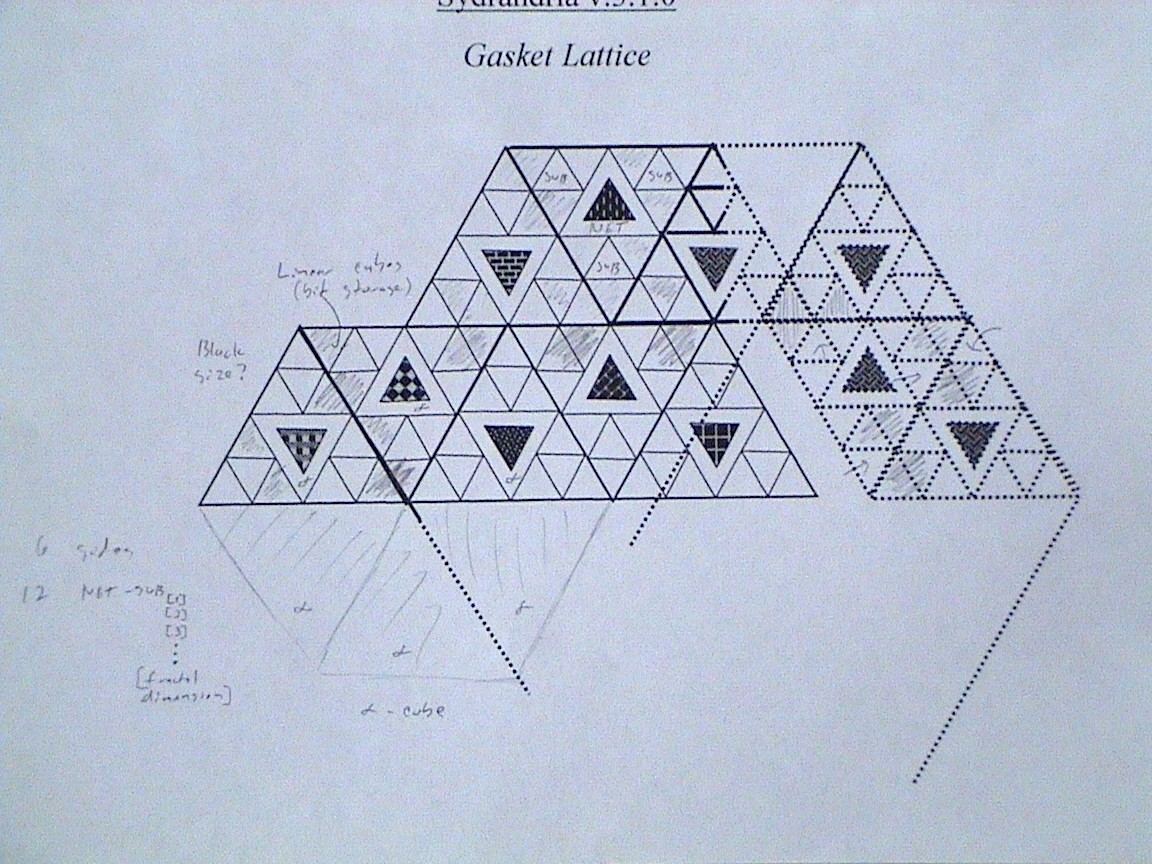 Sydrandria v.3.1.0
Gasket Lattice
SUB SUB
NET
SUB
Linear cubes
(bit storage)
Block
size?
α
α α
6 sides
12 NET-SUB [1]
[2]
[3]
[fractal
dimension]
α α
α
α-cube